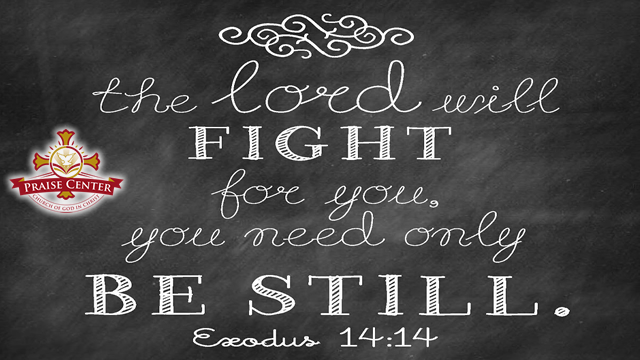 the lord will
FIGHT
for you,
you need only
BE STILL.
Exodus 14:14
PRAISE CENTER
CHURCH OF GOD IN CHRIST